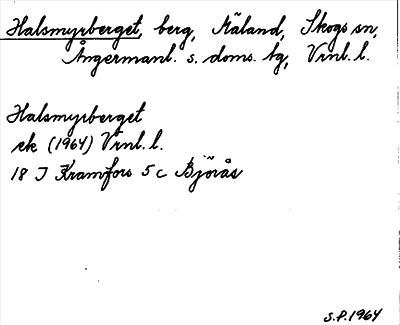 Halsmyrberget, berg, Mäland, Skogs sn,
Ångermanl. s. doms. tg, Vrnl. l.
Halsmyrberget
ek (1964) Vrnl. l.
18 J Kramfors 5 c Björås
S.P. 1964